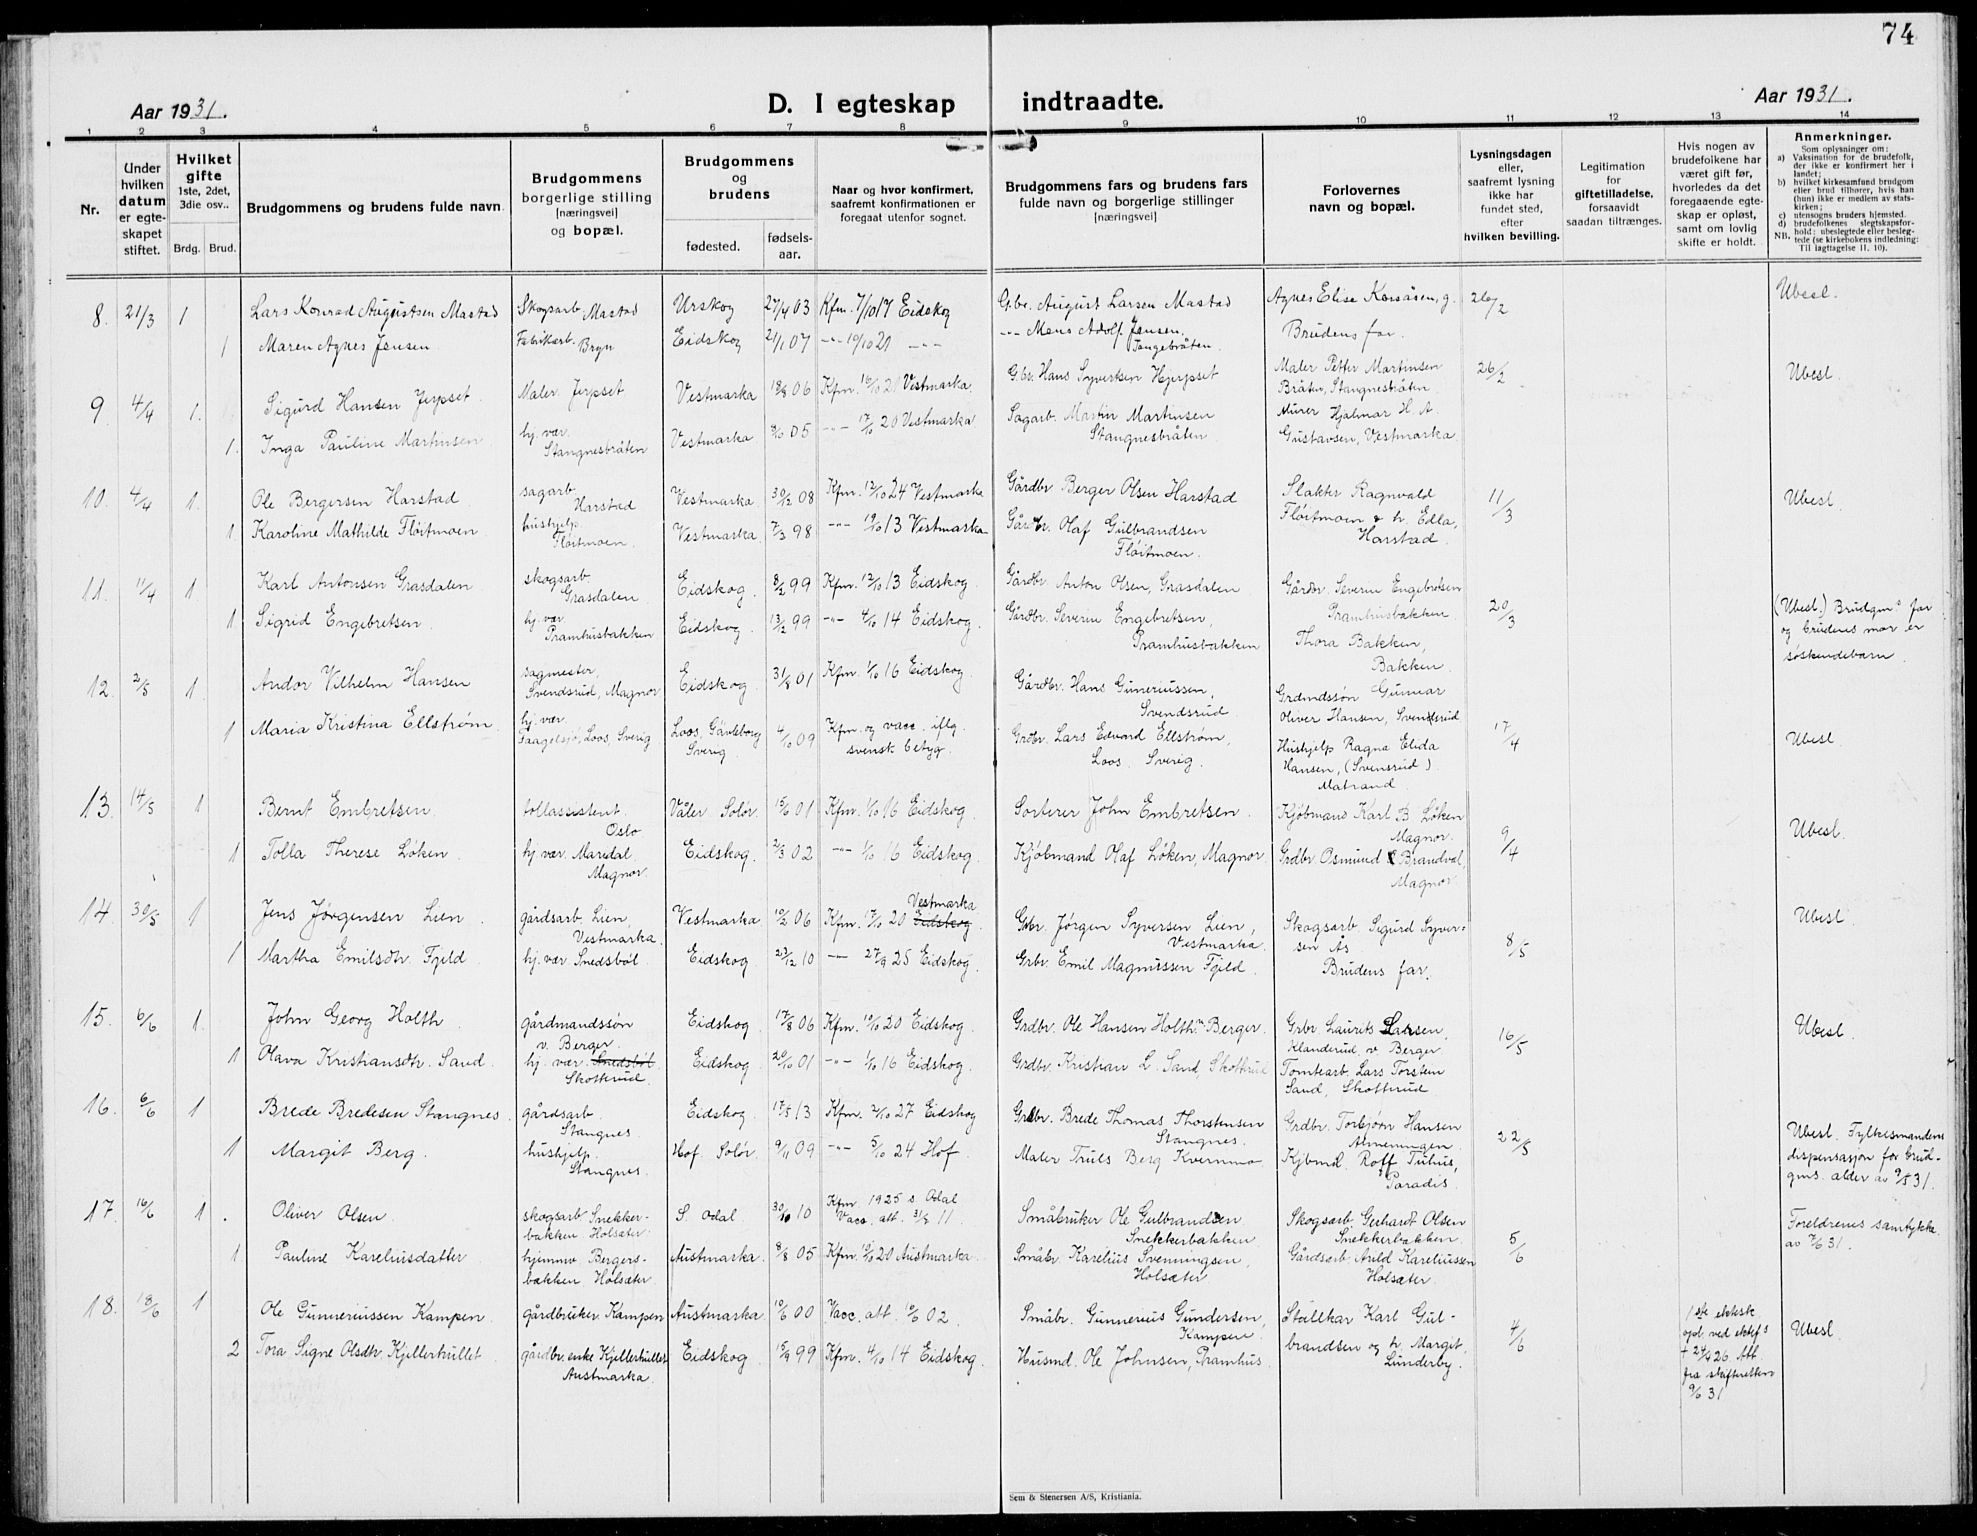 74
Aar 1931.
D. I egteskap indtraadte.
Aar 1931.
1 2 3 4 5 6 7 8 9 10 11 12 13 14
Nr.
Under hvilken datum er egteskapet stiftet.
Hvilket gifte 1ste, 2det, 3die osv..
Brdg. Brud.
Brudgommens og brudens fulde navn.
Brudgommens borgerlige stilling [næringsvei] og bopæl.
Brudgommens og brudens
fødested. fødselsaar.
Naar og hvor konfirmert, saafremt konfirmationen er foregaat utenfor sognet.
Brudgommens fars og brudens fars fulde navn og borgerlige stillinger [næringsvei]
Forlovernes navn og bopæl.
Lysningsdagen eller, saafremt lysning ikke har fundet sted, efter hvilken bevilling.
Legitimation for giftetilladelse, forsaavidt saadan tiltrænges.
Hvis nogen av brudefolkene har været gift før, hvorledes da det foregaaende egteskap er opløst, samt om lovlig skifte er holdt.
Anmerkninger.
Som oplysninger om:
a) Vaksination for de brudefolk, der ikke er konfirmert her i landet;
b) hvilket kirkesamfund brudgom eller brud tilhører, hvis han (hun) ikke er medlem av statskirken;
c) utensogns bruders hjemsted.
d) brudefolkenes slegtskapsforhold: ubeslegtede eller beslegtede (se kirkebokens indledning: NB. Til iagttagelse II. 10).
8. 21/3 1 Lars Konrad Augustsen Mastad Skogsarb. Mastad Urskog 27/4 03 Kfm. 7/10 17 Eidskog Gbr. August Larsen Mastad Agnes Elise Korsåsen, g. 26/2 Ubesl.
1 Maren Agnes Jensen Fabrikarb. Bryn Eidskog 21/1 07 -"- 10/10 21 -"- -"- Mons Adolf Jensen, Tangebråten. Brudens far.
9. 4/4 1. Sigurd Hansen Jerpset. Maler. Jerpset Vestmarka 18/8 06 Kfm. 16/10 21 Vestmarka Gbr. Hans Syversen Hjerpset Maler Petter Martinsen Bråten, Stangnesbråten 26/2 Ubesl.
1. Inga Pauline Martinsen hj. vær. Stangnesbråten Vestmarka 05 -"- 17/10 20 Vestmarka Sagarb. Martin Martinsen Stangnesbråten Murer Hjalmar H. A. Gustavsen, Vestmarka.
10. 4/4 1. Ole Bergersen Harstad sagarb. Harstad Vestmarka 30/12 08 Kfm. 12/10 24 Vestmarka Gårdbr. Berger Olsen Harstad Slakter Ragnvald Fløitmoen & h. Edla, Harstad. 11/3 Ubesl.
1 Karoline Mathilde Fløitmoen hushjelp. Fløitmoen. Vestmarka 7/3 98 -"- 19/10 13 Vestmarka Gårdbr. Olaf Gulbrandsen Fløitmoen.
11. 11/4 1 Karl Antonsen Grasdalen skogsarb. Grasdalen Eidskog. 8/2 99 Kfm. 12/10 13 Eidskog Gårdbr. Anton Olsen, Grasdalen Gårdbr. Severin Engebretsen Pramhusbakken 20/3 (Ubesl.) Brudgms far og brudens mor er søskendebarn.
1 Sigrid Engebretsen. hj. vær Pramhusbakken Eidskog. 13/2 99 -"- 4/10 14 Eidskog. Gårdbr. Severin Engebretsen, Pramhusbakken Thora Bakken, Bakken.
12. 2/5 1 Andor Vilhelm Hansen sagmester, Svendsrud, Magnor Eidskog. 31/8 01 Kfm. 1/10 16 Eidskog. Gårdbr. Hans Guneriussen, Svendsrud Grdmdssøn Gunnar Oliver Hansen, Svendsrud 17/4 Ubesl.
1 Maria Kristina Ellstrøm hj. vær. Faagelsjø, Loos, Sverig Loos, Gävleborg Sverig 4/10 09 Kfm. og vacc. iflg. svensk betyg. Grdbr. Lars Edvard Ellstrøm, Loos. Sverig. Hushjelp Ragna Elida Hansen, (Svensrud). Matrand
13. 14/5 1 Bernt Embretsen. tollassistent. Oslo Våler Solør. 15/6 01 Kfm. 1/10 16 Eidskog. Sorterer John Embretsen. Kjøbmand Karl B. Løken Magnor. 9/4 Ubesl.
1 Tolla Therese Løken. hj. vær. Maredal Magnor. Eidskog. 2/3 02 -"- 1/10 16 Eidskog. Kjøbmand Olaf Løken, Magnor Grdbr Osmund Brandval, Magnor
14. 30/5 1 Jens Jørgensen Lien. gårdsarb. Lien, Vestmarka. Vestmarka 10/2 06 Kfm. 17/10 20 Vestmarka Eidskog. Gbr. Jørgen Syversen Lien, Vestmarka. Skogsarb. Sigurd Syversen Ås. 8/5 Ubesl.
1 Martha Emilsdtr. Fjeld. hj. vær Snedsbøl Eidskog. 23/12 10 -"- 27/9 25 Eidskog. Grbr. Emil Magnussen Fjeld. Brudens far.
15. 6/6 1. John Georg Holth. gårdmandssøn v. Berger. Eidskog 17/8 06 Kfm. 10/10 20 Eidskog. Grdbr. Ole Hansen Holth. Berger. Grbr. Laurits Larsen, Klanderud, v. Berger 16/5 Ubesl.
1 Olava Kristiansdtr. Sand. hj. vær. Snedsbøl Skotterud. Eidskog 20/10 01 -"- 1/10 16 Eidskog. Grdbr. Kristian L. Sand, Skotterud Tomtearb. Lars Torstein Sand, Skotterud
16. 6/6 1 Brede Bredesen Stangnes. gårdsarb. Stangnes. Eidskog 17/5 13 Kfm. 2/10 27 Eidskog Grdbr. Brede Thomas Thorstensen Stangnes. Grdbr. Torbjørn Hansen Almeningen 22/5 Ubesl. Fylkesmandens dispensasjon for brudgms. alder av 9/5 31.
1 Margit Berg. hushjelp. Stangnes. Hof. Solør. 9/11 09 -"- 5/10 24 Hof. Maler Truls Berg Kvernmo Kjbmd. Rolf Tuhus, Paradis.
17. 16/6 1. Oliver Olsen. skogsarb Snekkerbakken Holsæter S. Odal. 30/10 10 Kfm 1925 s. Odal Vacc. att. 31/8 11. Småbruker Ole Gulbrandsen Snekkerbakken Skogsarb. Gerhardt Olsen Snekkerbakken. 5/6 Foreldrenes samtykke av 7/6 31.
1 Pauline Kareliusdatter hjemmv Bergersbakken Holsæter Austmarka. 8/8 05 Kfm. 10/10 20 Austmarka. Småbr. Karelius Svenningsen, Holsæter Gårdsarb Arild Kareliussen Holsæter.
18. 18/6 1 Ole Gunneriussen Kampen. gårdbruker Kampen Austmarka. 10/6 00 Vacc. att. 02. Småbr. Gunnerius Gundersen, Kampen. Stallkar Karl Gulbrandsen og h. Margit, Lunderby. 4/6 1ste ektesk opl. ved ektef.s + 24/4 26. Att. fra skifteretten 9/6 31 Ubesl.
2 Tora Signe Olsdtr. Kjellerhullet. gårdbr. enke Kjellerhullet Austmarka. Eidskog 15/9 99 Kfm. 4/10 14 Eidskog. Husmd. Ole Johnsen, Pramhus.
Sem & Stenersen A/S, Kristiania.